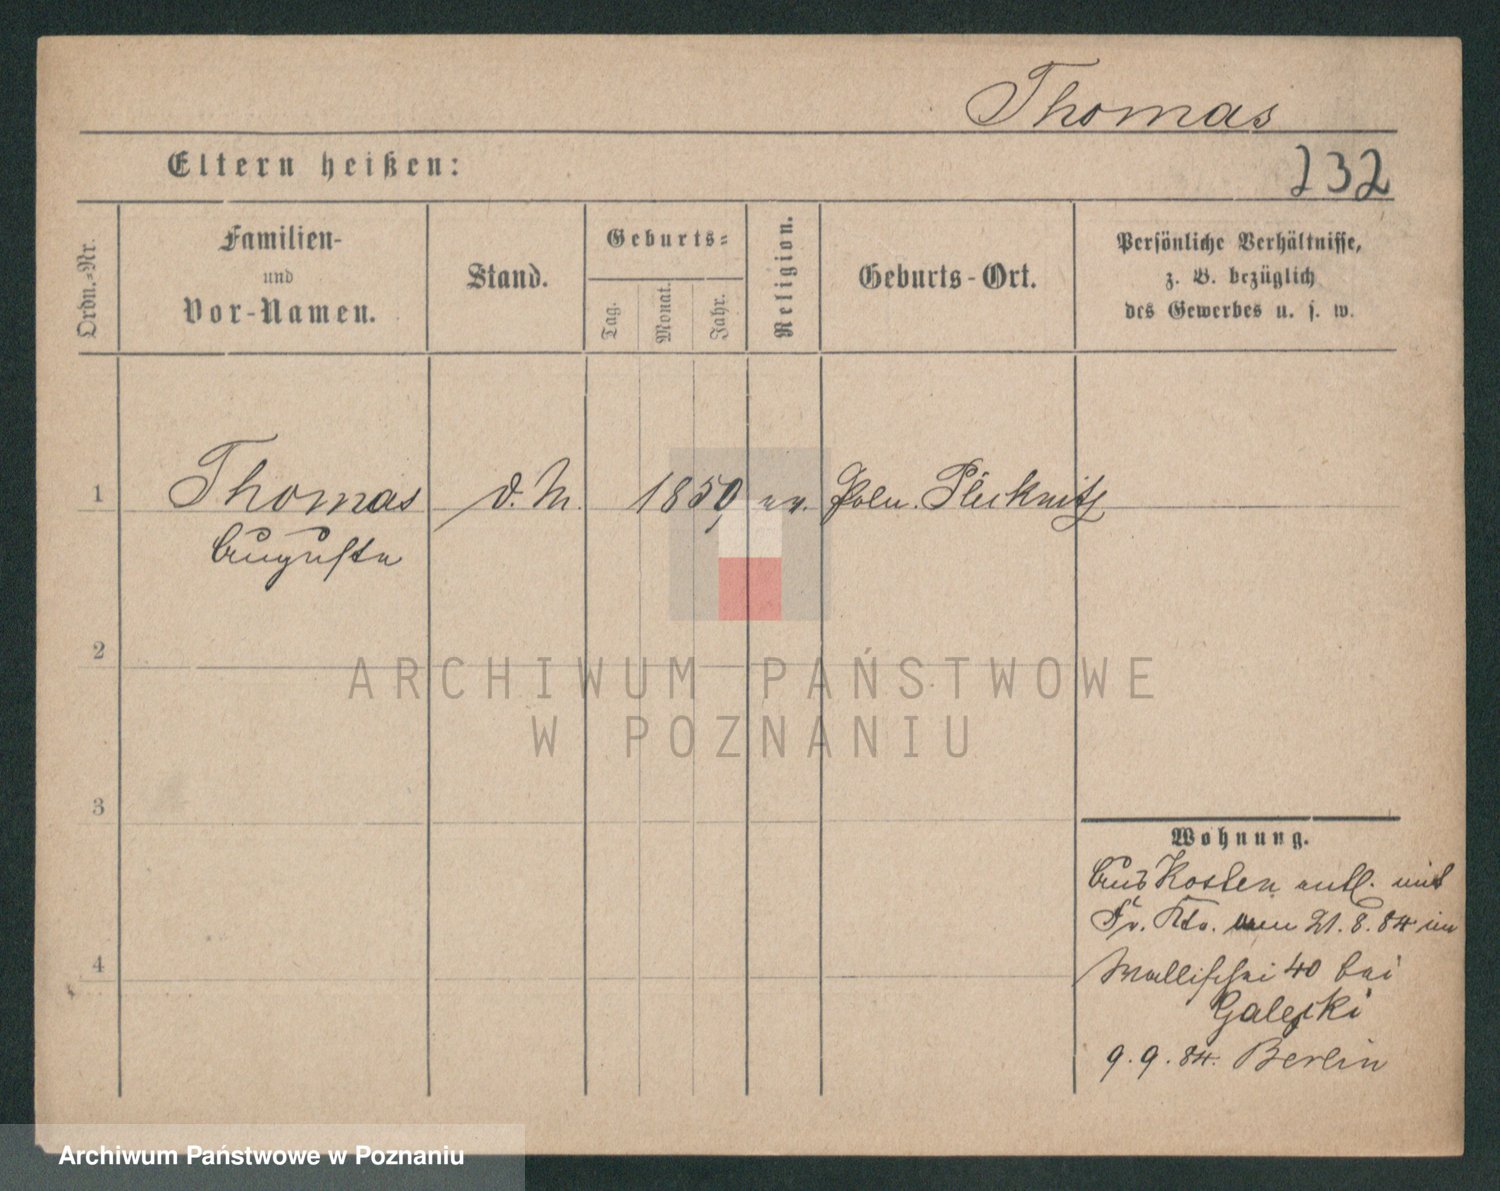 Thomas
Eltern heißen:
232
Ordn.-Nr.
Familien-
und
Vor-Namen.
Stand.
Geburts-
Tag.
Monat.
Jahr.
Religion.
Geburts-Ort.
Persönliche Verhältnisse,
z. B. bezüglich
des Gewerbes u. s. w.
1
Thomas
Auguste
d. M.
1850
ev.
Poln.
2
ARCHIWUM PAŃSTWOWE
W POZNANIU
3
Wohnung.
Aus Kosten entl. mit
21.8.84 in
Wallischei 40 bei
Galeski
4
9.9.84. Berlin
Archiwum Państwowe w Poznaniu